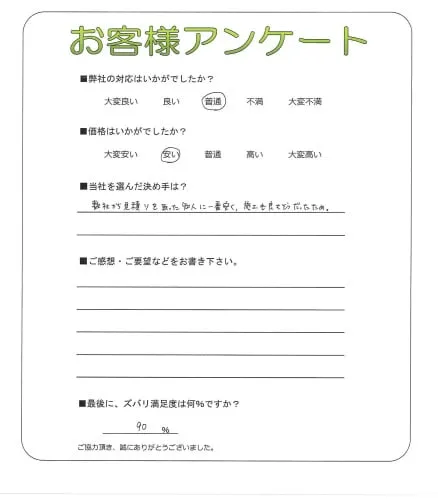 お客様アンケート
■弊社の対応はいかがでしたか？
大変良い 良い 普通 不満 大変不満
■価格はいかがでしたか？
大変安い 安い 普通 高い 大変高い
■当社を選んだ決め手は？
数社から見積りを取った中で一番安く、施工も良さそうだったため。
■ご感想・ご要望などをお書き下さい。
■最後に、ズバリ満足度は何%ですか？
90 %
ご協力頂き、誠にありがとうございました。